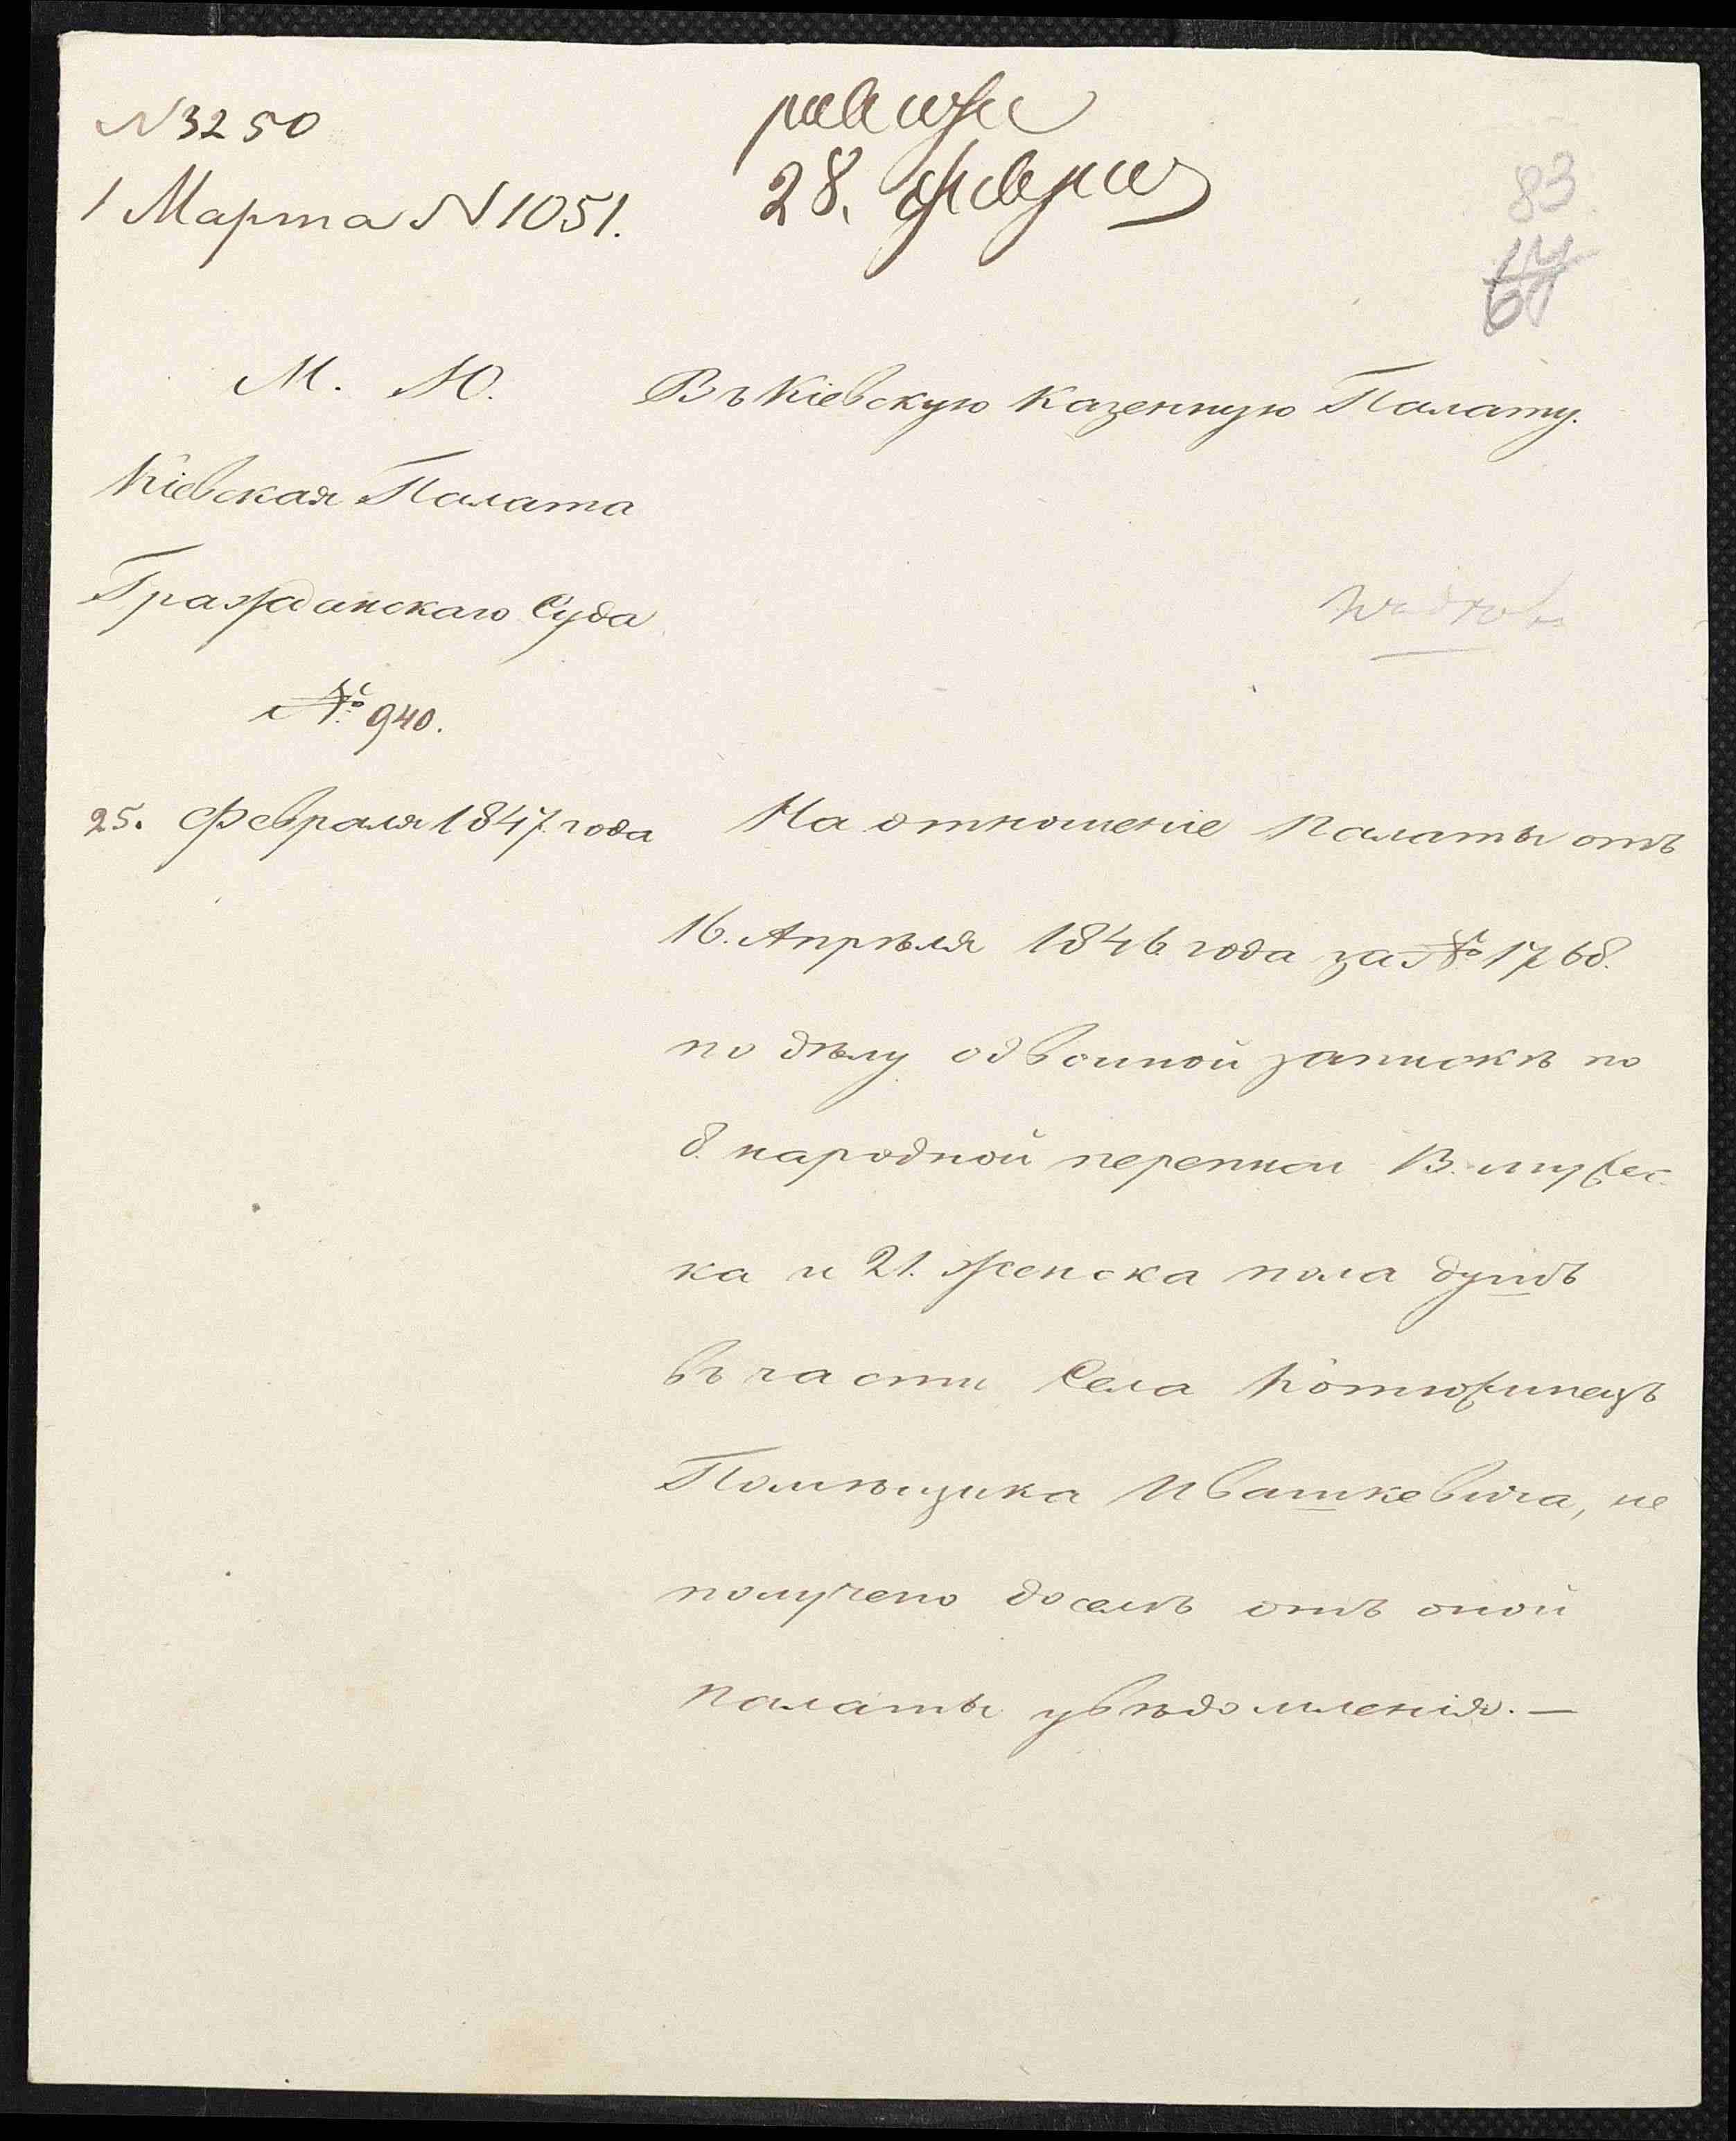 N 3250
1 Марта N 1051.
28. февраля
83
64
М. Ю.
Въ Кіевскую Казенную Палату.
Кіевская Палата
Гражданскаго Суда
№ 940.
25. Февраля 1847. года
На отношеніе Палаты отъ
16. Апрѣля 1846 года за № 1768.
по дѣлу о двоиной запискѣ по
8. народной переписи 13. мужес-
ка и 21. женска пола душъ
въ части Села Котюжинецъ
Помѣщика Ивашкевича, не
получено доселѣ отъ оной
палаты увѣдомленія. —